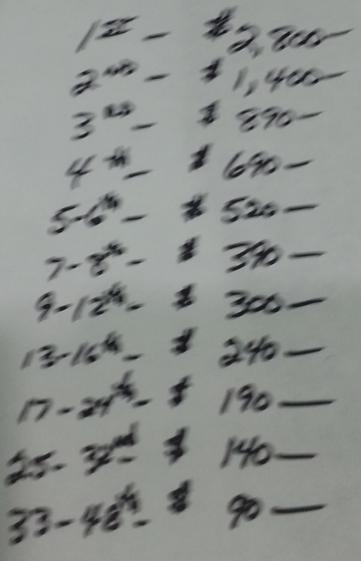 1st - $ 2,800—
2nd - $ 1,400—
3rd - $ 890—
4th - $ 690—
5-6th - $ 520—
7-8th - $ 390—
9-12th - $ 300—
13-16th - $ 240—
17-24th - $ 190—
25-32nd - $ 140—
33-48th - $ 90—